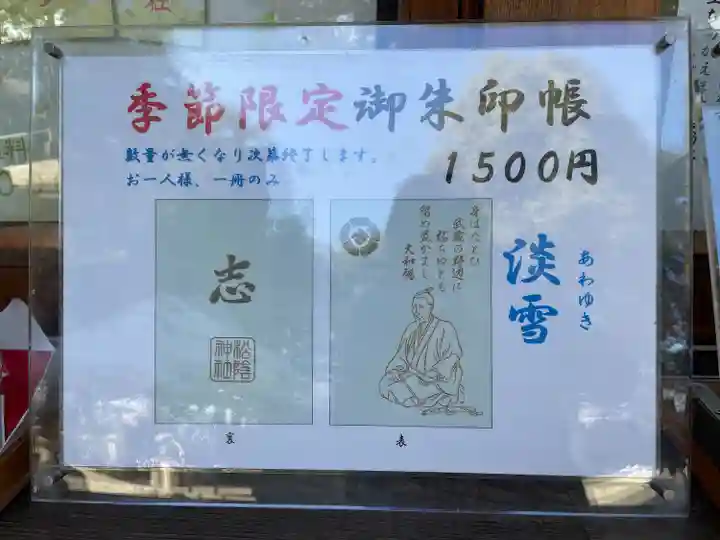 社
季節限定御朱印帳
数量が無くなり次第終了します。
お一人様、一冊のみ
1500円
志
松陰
神社
裏
身はたとひ
武蔵の野辺に
朽ちぬとも
留め置かまし
大和魂
表
淡雪
あわゆき